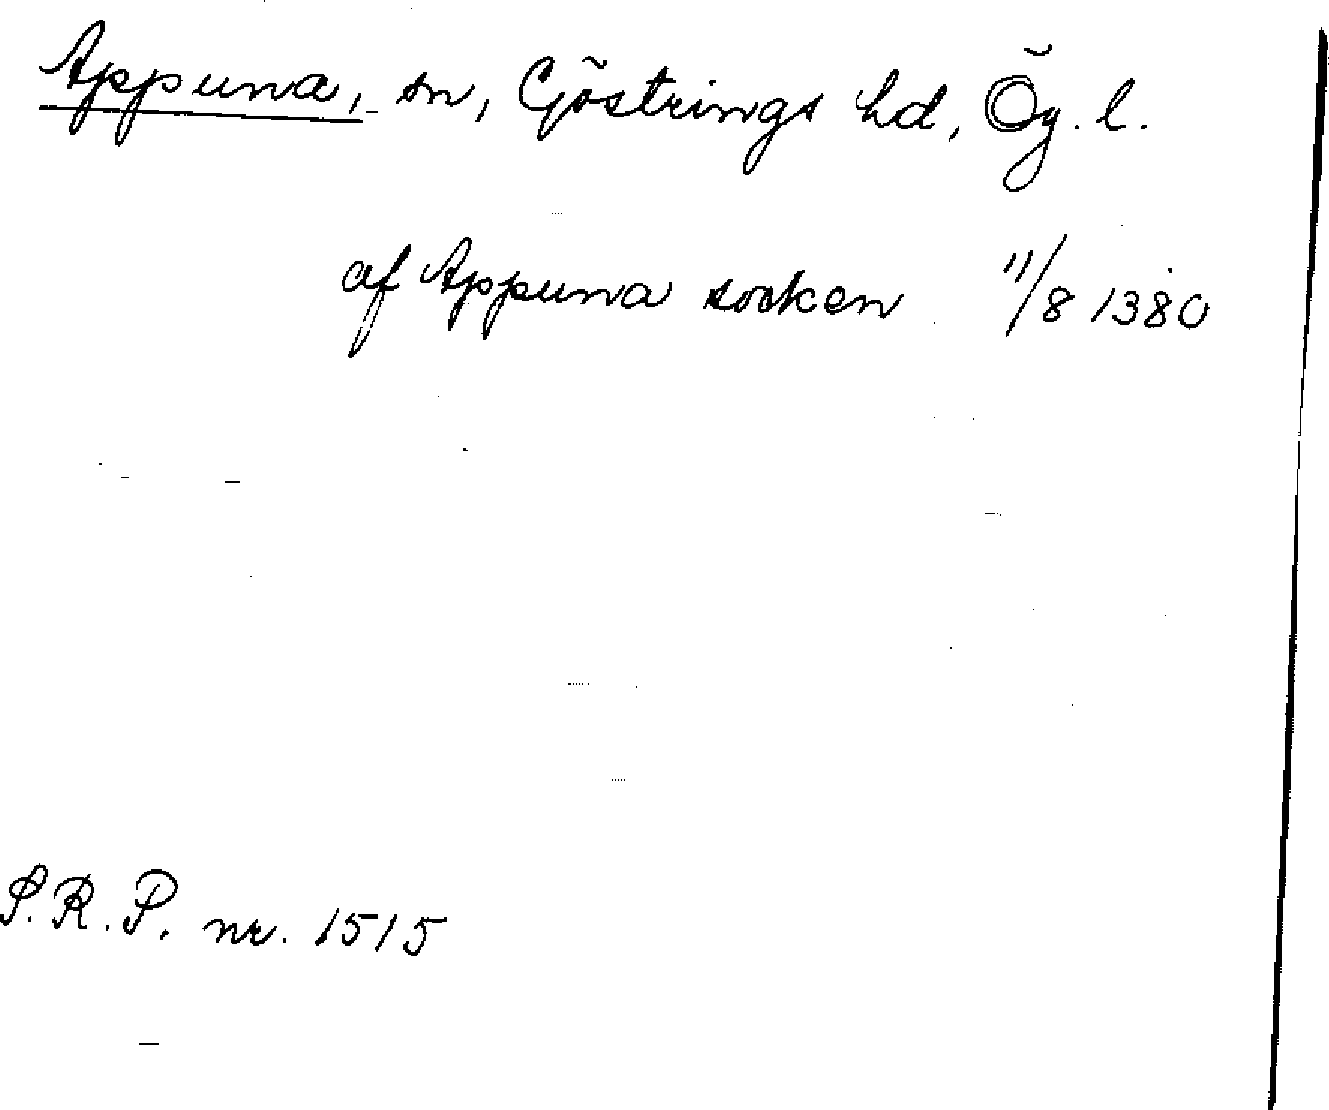 Appuna, sn, Göstrings hd, Ög. l.
af Appuna socken 11/8 1380
S.R.P. nr. 1515